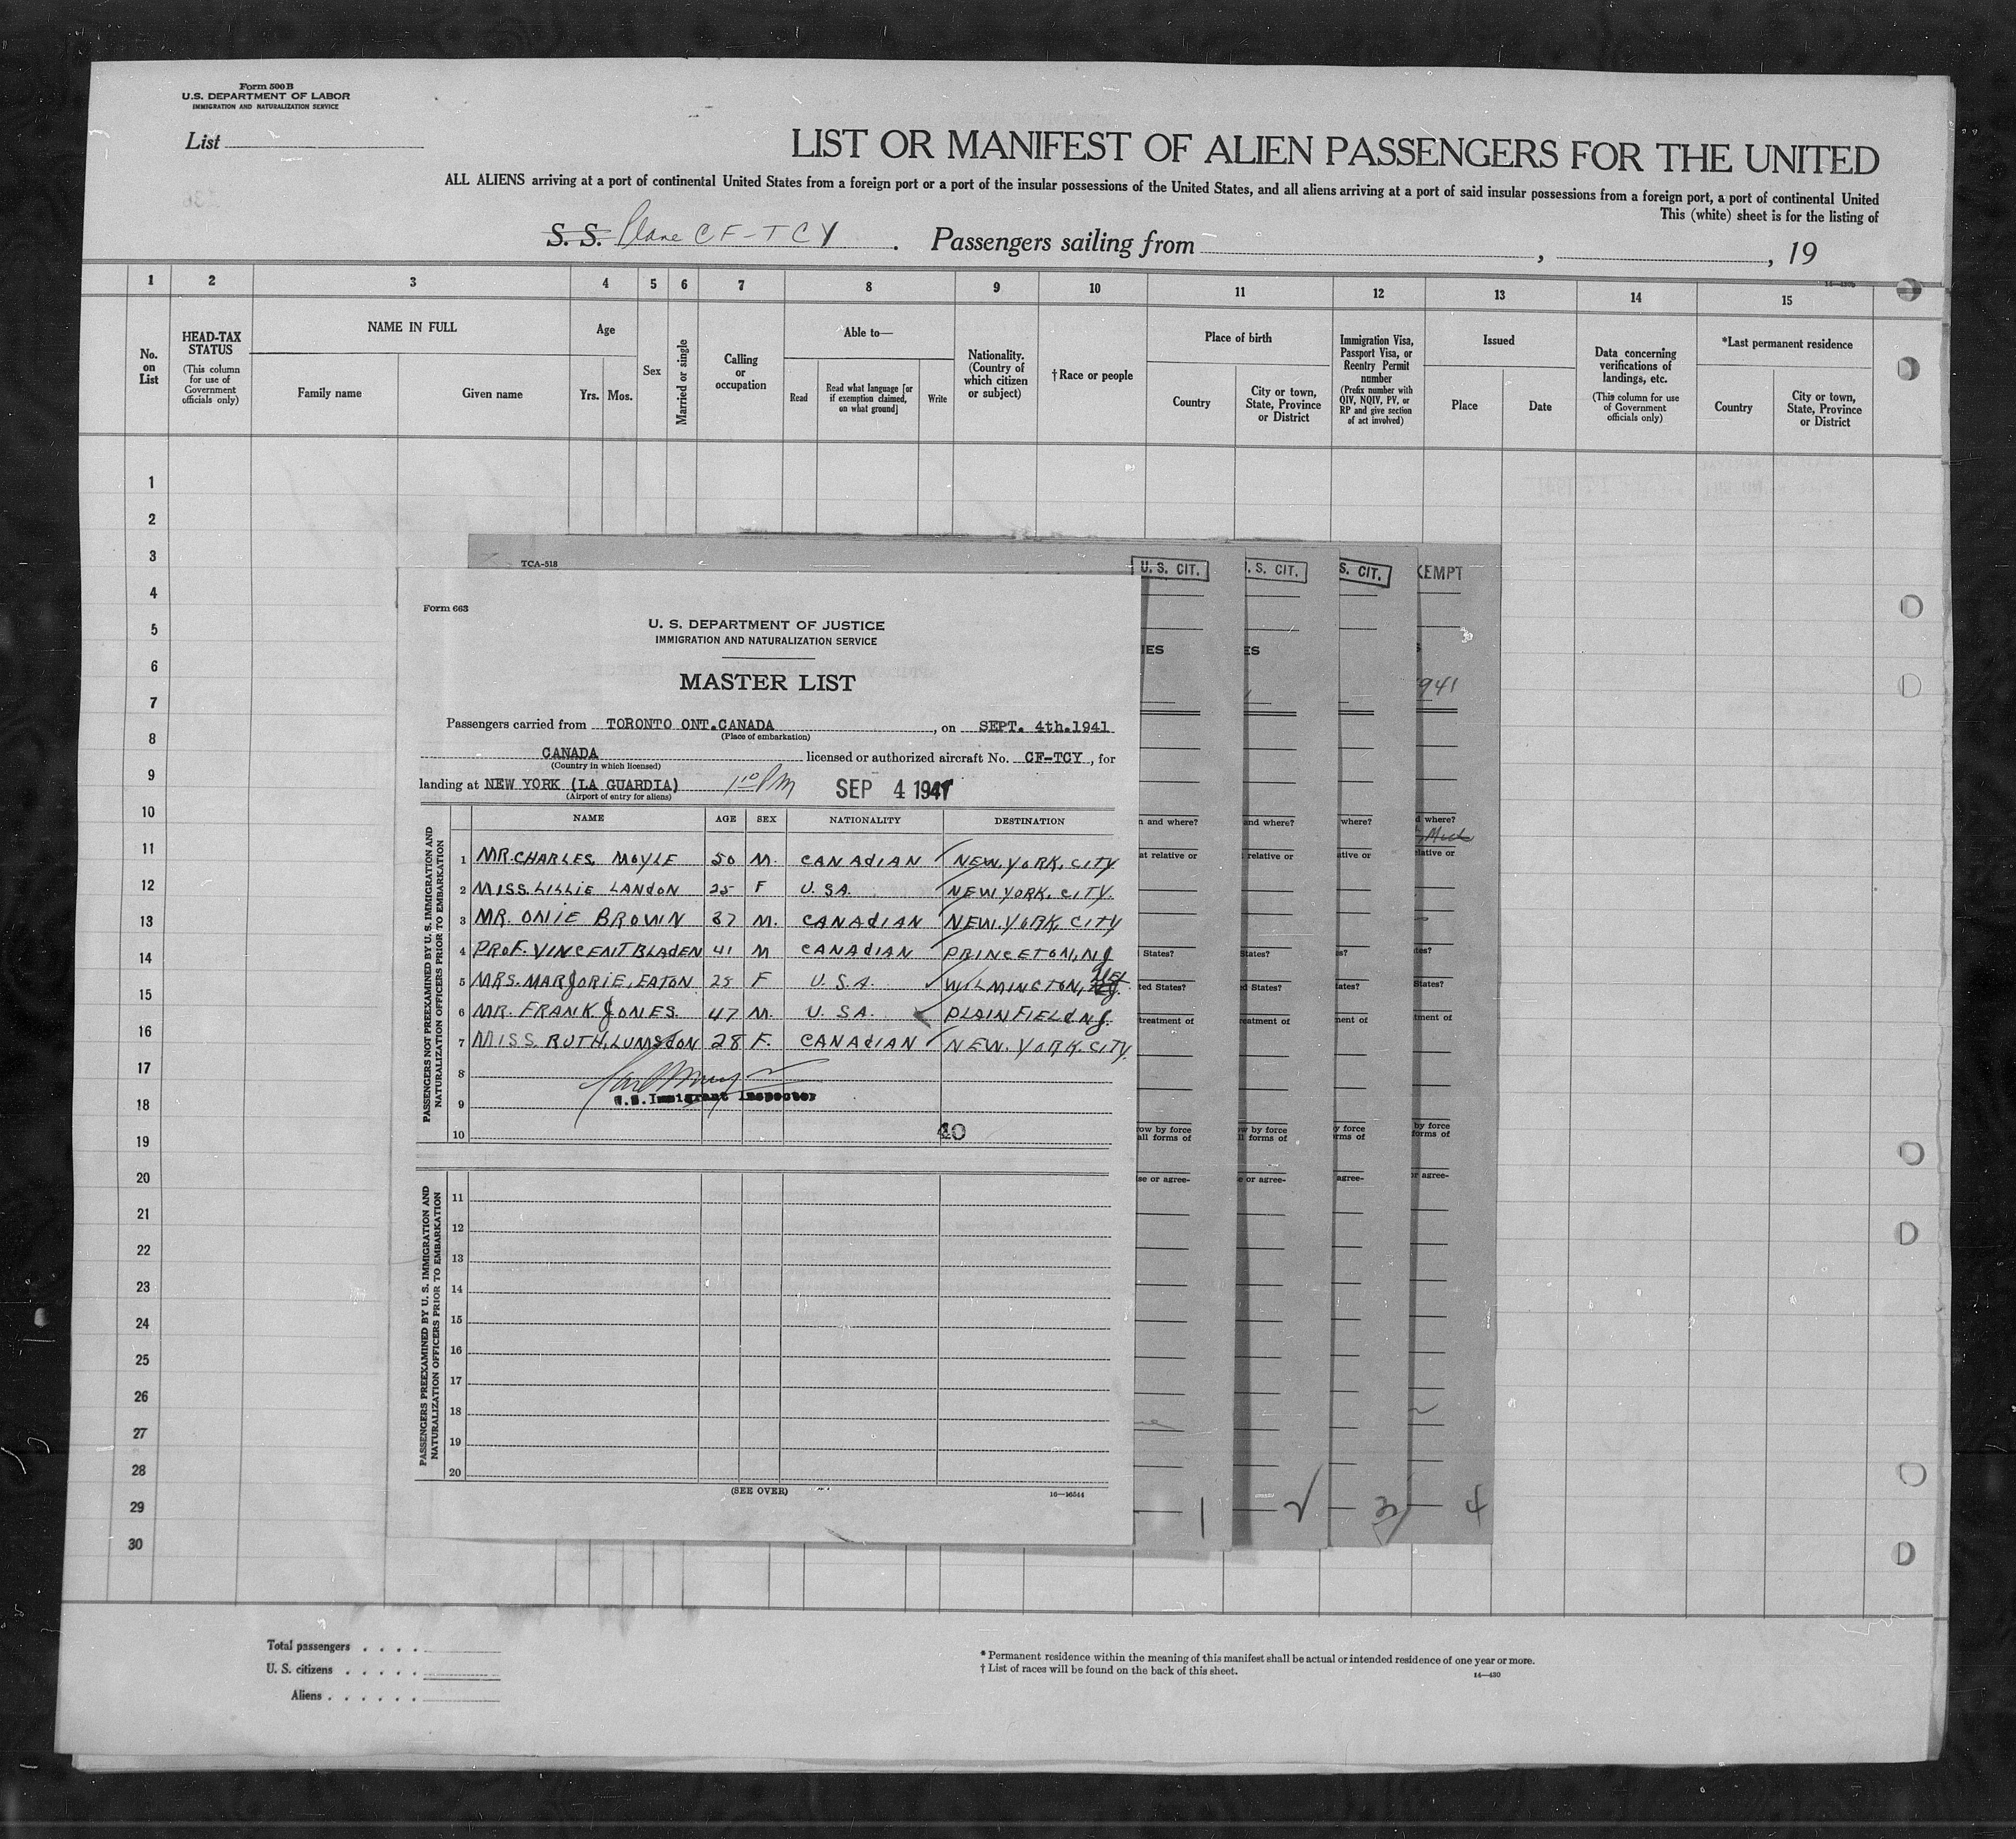 Form 500B
U.S. DEPARTMENT OF LABOR
IMMIGRATION AND NATURALIZATION SERVICE
List
LIST OR MANIFEST OF ALIEN PASSENGERS FOR THE UNITED
ALL ALIENS arriving at a port of continental United States from a foreign port or a port of the insular possessions of the United States, and all aliens arriving at a port of said insular possessions from a foreign port, a port of continental United
This (white) sheet is for the listing of
S. S. Plane CF-TCY . Passengers sailing from , , 19
1 2 3 4 5 6 7 8 9 10 11 12 13 14 15
No. on List
HEAD-TAX STATUS
(This column for use of Government officials only)
NAME IN FULL
Family name
Given name
Age
Yrs. Mos.
Sex
Married or single
Calling or occupation
Able to—
Read
Read what language [or if exemption claimed, on what ground]
Write
Nationality. (Country of which citizen or subject)
†Race or people
Place of birth
Country
City or town, State, Province or District
Immigration Visa, Passport Visa, or Reentry Permit number
(Prefix number with QIV, NQIV, PV, or RP and give section of act involved)
Issued
Place
Date
Data concerning verifications of landings, etc.
(This column for use of Government officials only)
*Last permanent residence
Country
City or town, State, Province or District
1
2
3
4
5
6
7
8
9
10
11
12
13
14
15
16
17
18
19
20
21
22
23
24
25
26
27
28
29
30
TCA-518
U. S. CIT.
. S. CIT.
S. CIT.
KEMPT
Form 663
U. S. DEPARTMENT OF JUSTICE
IMMIGRATION AND NATURALIZATION SERVICE
MASTER LIST
Passengers carried from TORONTO ONT.CANADA , on SEPT. 4th.1941
(Place of embarkation)
CANADA licensed or authorized aircraft No. CF-TCY , for
(Country in which licensed)
landing at NEW YORK (LA GUARDIA) 1 10 PM SEP 4 1941
(Airport of entry for aliens)
NAME AGE SEX NATIONALITY DESTINATION
PASSENGERS NOT PREEXAMINED BY U. S. IMMIGRATION AND NATURALIZATION OFFICERS PRIOR TO EMBARKATION
1 MR. CHARLES MOYLE 50 M. CANADIAN NEW YORK, CITY
2 MISS. LILLIE LANDON 25 F U. S A. NEW YORK, CITY.
3 MR. ONIE BROWN 37 M. CANADIAN NEW YORK, CITY
4 PROF. VINCENT BLADEN 41 M CANADIAN PRINCETON, NJ
5 MRS. MARJORIE, EATON 25 F U.S.A. WILMINGTON, DEL
6 MR. FRANK JONES. 47 M. U. S A. PLAINFIELD NJ.
7 MISS. RUTH, LUMSDON 28 F. CANADIAN NEW. YORK. CITY.
8
U.S. Immigrant Inspector
9
10 40
PASSENGERS PREEXAMINED BY U. S. IMMIGRATION AND NATURALIZATION OFFICERS PRIOR TO EMBARKATION
11
12
13
14
15
16
17
18
19
20
(SEE OVER)
16—16544
IES
ES
S
941
n and where?
and where?
where?
d where?
at relative or
relative or
ative or
lative or
States?
States?
s?
tes?
ted States?
d States?
tates?
States?
treatment of
eatment of
ment of
tment of
row by force
all forms of
w by force
ll forms of
y force
rms of
by force
orms of
se or agree-
e or agree-
agree-
or agree-
1 2 3 4
Total passengers . . . .
U. S. citizens . . . . .
Aliens . . . . . .
* Permanent residence within the meaning of this manifest shall be actual or intended residence of one year or more.
† List of races will be found on the back of this sheet.
14—430